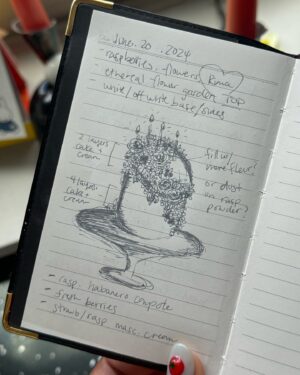 June. 20. 2024
- raspberries, flowers, Roma
- ethereal flower garden top
- white/off white base/sides
2 layers
cake +
cream
fill w/
more fleur?
or dust
w. rasp
powder?
4 layers
cake +
cream
- rasp. habanero compote
- fresh berries
- strawb/rasp masc. cream